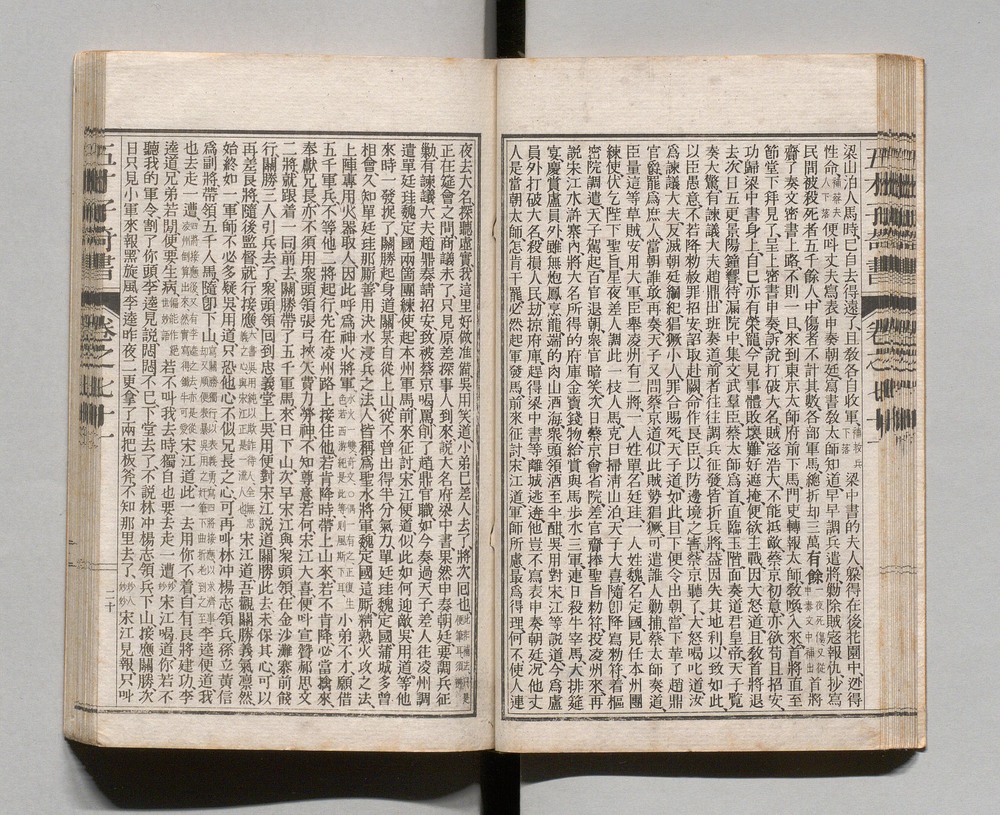 梁山泊人馬時已自去得遠了且敎各自收軍梁中書的夫人躱得在後花園中迯得
性命便叫丈夫寫表申奏朝廷寫書敎太師知道早早調兵遣將勦除賊寇報仇抄寫
民間被殺死者五千餘人中傷者不計其數各部軍馬總折却三萬有餘首將
齎了奏文密書上路不則一日來到東京太師府前下馬門吏轉報太師敎喚入來首將直至
節堂下拜見了呈上密書申奏訴說打破大名賊寇浩大不能抵敵蔡京初意亦欲苟且招安
功歸梁中書身上自己亦有榮寵今見事體敗壞難好遮掩便欲主戰因大怒道且敎首將退
去次日五更景陽鐘響待漏院中集文武羣臣蔡太師爲首直臨玉階面奏道君皇帝天子覽
奏大驚有諫議大夫趙鼎出班奏道前者往往調兵征發皆折兵將盖因失其地利以致如此
以臣愚意不若降勑赦罪招安詔取赴闕命作良臣以防邊境之害蔡京聽了大怒喝叱道汝
爲諫議大夫反滅朝廷綱紀猖獗小人罪合賜死天子道如此目下便令出朝當下革了趙鼎
官爵罷爲庶人當朝誰敢再奏天子又問蔡京道似此賊勢猖獗可遣誰人勦捕蔡太師奏道
臣量這等草賊安用大軍臣舉凌州有二將一人姓單名廷珪一人姓魏名定國見任本州團
練使伏乞陛下聖旨星夜差人調此一枝人馬克日掃淸山泊天子大喜隨卽降寫勑符着樞
密院調遣天子駕起百官退朝衆官暗笑次日蔡京會省院差官齎捧聖旨勑符投凌州來再
說宋江水滸寨內將大名所得的府庫金寶錢物給賞與馬步水三軍連日殺牛宰馬大排筵
宴慶賞盧員外雖無炮鳳烹龍端的肉山酒海衆頭領酒至半酣吳用對宋江等說道今爲盧
員外打破大名殺損人民刼掠府庫趕得梁中書等離城逃奔他豈不寫表申奏朝廷况他丈
人是當朝太師怎肯干罷必然起軍發馬前來征討宋江道軍師所慮最爲得理何不使人連
夜去大名探聽虛實我這里好做准備吳用笑道小弟已差人去了將次回也
正在筵會之間商議未了只見原差探事人到來說大名府梁中書果然申奏朝廷要調兵征
勦有諫議大夫趙鼎奏請招安致被蔡京喝罵削了趙鼎官職如今奏過天子差人往凌州調
遣單廷珪魏定國兩箇團練使起本州軍馬前來征討宋江便道似此如何迎敵吳用道等他
來時一發捉了關勝起身對宋江道關某自從上山從不曾出得半分氣力單廷珪魏定國蒲城多曾
相會久知單廷珪那厮善用決水浸兵之法人皆稱爲聖水將軍魏定國這厮精熟火攻之法
上陣專用火器取人因此呼爲神火將軍小弟不才願借
五千軍兵不等他二將起行先在凌州路上接住他若肯降時帶上山來若不肯降必當擒來
奉獻兄長亦不須用衆頭領張弓挾矢費力勞神不知尊意若何宋江大喜便叫宣贊郝思文
二將就跟着一同前去關勝帶了五千軍馬來日下山次早宋江與衆頭領在金沙灘寨前餞
行關勝三人引兵去了衆頭領回到忠義堂上吳用便對宋江說道關勝此去未保其心可以
再差良將隨後監督就行接應宋江道吾觀關勝義氣凛然
始終如一軍師不必多疑吳用道只恐他心不似兄長之心可再叫林冲楊志領兵孫立黃信
爲副將帶領五千人馬隨卽下山李逵便道我
也去走一遭宋江道此一去用你不着自有良將建功李
逵道兄弟若閒便要生病若不叫我去時獨自也要去走一遭宋江喝道你若不
聽我的軍令割了你頭李逵見說悶悶不已下堂去了不說林冲楊志領兵下山接應關勝次
日只見小軍來報黑旋風李逵昨夜二更拿了兩把板斧不知那里去了宋江見報只叫
二十